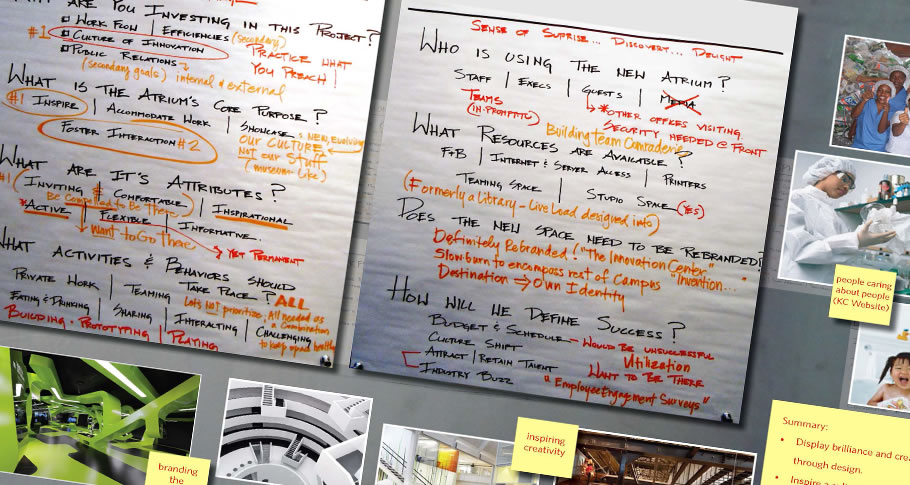 ARE YOU INVESTING IN THIS PROJECT?
WORK FLOW | EFFICIENCIES (secondary)
#1 CULTURE OF INNOVATION
PUBLIC RELATIONS
(secondary goals) internal & external
PRACTICE WHAT
YOU PREACH!
WHAT IS THE ATRIUM'S CORE PURPOSE?
#1 INSPIRE | ACCOMMODATE WORK | SHOWCASE = NEW, Evolving
OUR CULTURE
NOT our Stuff
(museum-like)
FOSTER INTERACTION #2
WHAT ARE IT'S ATTRIBUTES?
#1 INVITING | COMFORTABLE | INSPIRATIONAL
Be Compelled to Be There
*ACTIVE FLEXIBLE INFORMATIVE...
want to Go There
* YET PERMANENT
WHAT ACTIVITIES & BEHAVIORS SHOULD
TAKE PLACE? ALL
PRIVATE WORK | TEAMING
Lets NOT prioritize. All needed as
a Combination
to keep
EATING & DRINKING | SHARING | INTERACTING | CHALLENGING
BUILDING • PROTOTYPING | PLAYING
SENSE OF SUPRISE... DISCOVERY... DELIGHT
WHO IS USING THE NEW ATRIUM?
STAFF | EXECS | GUESTS | MEDIA
TEAMS
*OTHER OFFICES VISITING.
SECURITY NEEDED @ FRONT
Building Team Camraderie
WHAT RESOURCES ARE AVAILABLE?
F+B | INTERNET & SERVER ACCESS | PRINTERS
TEAMING SPACE | STUDIO SPACE
(Formerly a Library - Live Load designed info)
DOES THE NEW SPACE NEED TO BE REBRANDED?
Definitely Rebranded ("The Innovation Center"
Slow burn to encompass rest of Campus "Invention..."
Destination ⇒ Own Identity
HOW WILL WE DEFINE SUCCESS?
BUDGET & SCHEDULE - WOULD BE UNSUCCESSFUL
CULTURE SHIFT
Utilization
ATTRACT | RETAIN TALENT
WANT TO BE THERE
INDUSTRY BUZZ
"Employee Engagement Surveys"
people caring
about people
(KC Website)
branding
the
inspiring
creativity
Summary:
• Display brilliance and
through design.
• Inspire a